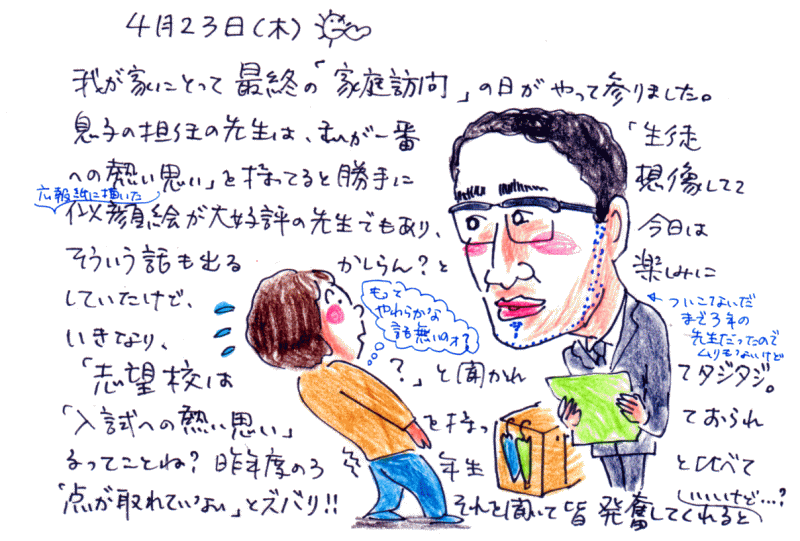 4月23日(木)
我が家にとって最終の「家庭訪問」の日がやって参りました。
息子の担任の先生は、私が一番「生徒
への熱い思い」を持ってると勝手に想像してて
広報紙に描いた
似顔絵が大好評の先生でもあり、今日は
そういう話も出るかしらん?と楽しみに
していたけど、
いきなり、
もっと
やわらかな
話無いのォ?
ついこないだ
まで3年の
先生だったので
ムリもないけど
「志望校は?」と聞かれてタジタジ。
「入試への熱い思い」を持っておられ
るってことね?昨年度の3年生と比べて
「点が取れていない」とズバリ!!それを聞いて皆発奮してくれると
いいけど…?